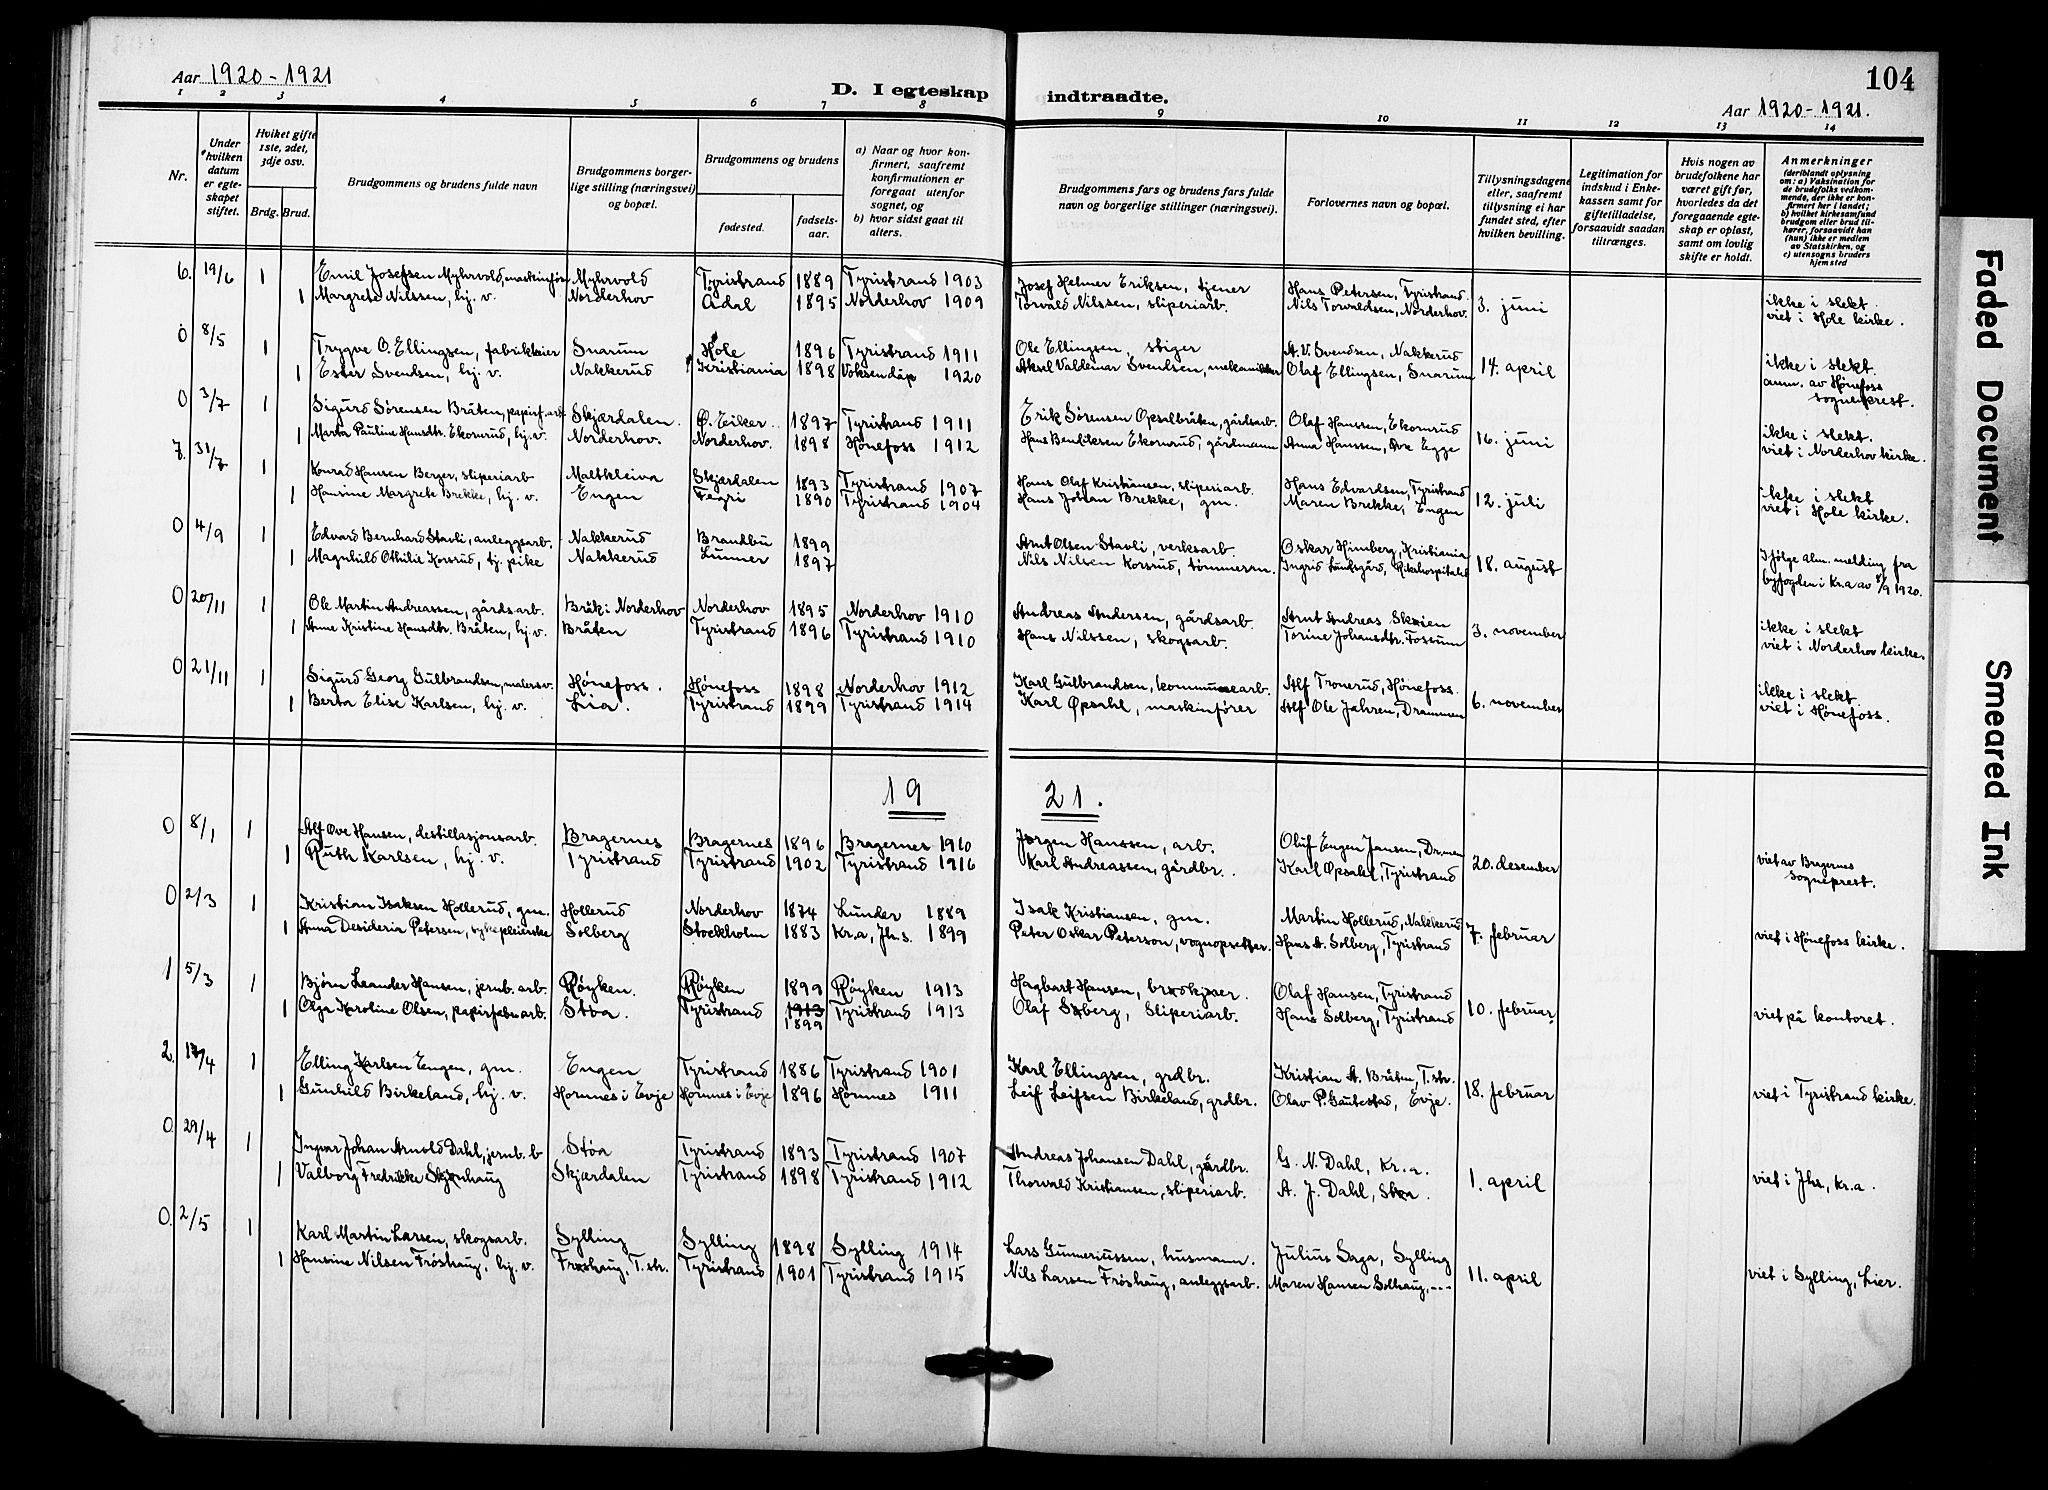 Aar 1920-1921
D. I egteskap indtraadte.
104
Aar 1920-1921.
1 2 3 4 5 6 7 8 9 10 11 12 13 14
Nr.
Under hvilken datum er egteskapet stiftet.
Hviket gifte 1ste, 2det, 3dje osv.
Brdg. Brud.
Brudgommens og brudens fulde navn
Brudgommens borgerlige stilling (næringsvei) og bopæl.
Brudgommens og brudens
fødested.
fødselsaar.
a) Naar og hvor konfirmert, saafremt konfirmationen er foregaat utenfor sognet, og
b) hvor sidst gaat til alters.
Brudgommens fars og brudens fars fulde navn og borgerlige stillinger (næringsvei).
Forlovernes navn og bopæl.
Tillysningsdagene eller, saafremt tillysning ei har fundet sted, efter hvilken bevilling.
Legitimation for indskud i Enkekassen samt for giftetilladelse, forsaavidt saadan tiltrænges.
Hvis nogen av brudefolkene har været gift før, hvorledes da det foregaaende egteskap er opløst, samt om lovlig skifte er holdt.
Anmerkninger (deriblandt oplysning om: a) Vaksination for de brudefolks vedkommende, der ikke er konfirmert her i landet; b) hvilket kirkesamfund brudgom eller brud tilhører, forsaavidt han (hun) ikke er medlem av Statskirken, og c) utensogns bruders hjemsted
6. 19/6 1 Emil Josefsen Myhrvold, maskinfører Myhrvold Tyristrand 1889 Tyristrand 1903 Josef Helmer Eriksen, tjener Hans Petersen, Tyristrand. 3. juni ikke i slekt.
1 Margrete Nilssen, hj. v. Norderhov Ådal 1895 Norderhov 1909 Torvald Nilssen, sliperiarb. Nils Torvaldsen, Norderhov. viet i Hole kirke.
0 8/5 1 Trygve O. Ellingsen, fabrikkeier Snarum Hole 1896 Tyristrand 1911 Ole Ellingsen, stiger A. V. Svendsen, Nakkerud 14. april ikke i slekt.
1 Ester Svendsen, hj. v. Nakkerud Kristiania 1898 Voksendåp 1920 Aksel Valdemar Svendsen, mekaniker Olaf Ellingsen, Snarum anm. av Hønefoss sogneprest.
0 3/7 1 Sigurd Sørensen Bråten, papirf.arb. Skjærdalen. Ø. Eiker. 1897 Tyristrand 1911 Erik Sørensen Opsalbråten, gårdsarb. Olaf Hanssen, Ekornrud 16. juni ikke i slekt.
1 Marta Pauline Hansdtr. Ekornrud, hj. v. Norderhov. Norderhov. 1898 Hønefoss 1912 Hans Bendiksen Ekornrud, gårdmann Anna Hanssen, Øvre Egge viet i Norderhov kirke.
7. 31/7 1 Konrad Hansen Berger, sliperiarb Maltkleiva Skjærdalen 1893 Tyristrand 1907 Hans Olaf Kristiansen, sliperiarb. Hans Edvardsen, Tyristrand 12. juli ikke i slekt
1 Hansine Margrete Brekke, hj. v. Engen Fegri 1890 Tyristrand 1904 Hans Johan Brekke, gm. Maren Brekke, Engen viet i Hole kirke.
0 4/9 1 Edvard Bernhard Stavli, anleggsarb. Nakkerud Brandbu 1899 Arnt Olsen Stavli, verksarb. Oskar Himberg, Kristiania 18. august Ifølge alm. melding fra
1 Magnhild Othilie Korsrud, tj. pike Nakkerud Lunner 1897 Nils Nilsen Korsrud, tømmerm. Ingrid Lundsgård, Rikshospitalet byfogden i Kr.a av 8/9 1920.
0 20/11 1 Ole Martin Andreassen, gårdsarb. Bråk i Norderhov Norderhov 1895 Norderhov 1910 Andreas Andersen, gårdsarb. Arnt Andreas Skoien 3. november ikke i slekt
1 Anne Kristine Hansdtr. Bråten, hj. v. Bråten Tyristrand 1896 Tyristrand 1910 Hans Nilssen, skogsarb. Torine Johansdtr. Fossum viet i Norderhov kirke.
0 21/11 1 Sigurd Georg Gulbrandsen, malersv. Hønefoss. Hønefoss 1898 Norderhov 1912 Karl Gulbrandsen, kommunearb. Alf Tronerud, Hønefoss. 6. november ikke i slekt.
1 Berta Elise Karlsen, hj. v. Lia. Tyristrand 1899 Tyristrand 1914 Karl Opsahl, maskinfører Alf Ole Jahren, Drammen viet i Hønefoss.
19 21.
0 8/1 1 Alf Ove Hansen, destillasjonsarb. Bragernes Bragernes 1896 Bragernes 1910 Jørgen Hanssen, arb. Oluf Engen Jansen, Dr.men 20. desember viet av Bragernes
1 Ruth Karlsen, hj. v. Tyristrand Tyristrand 1902 Tyristrand 1916 Karl Andreassen, gårdbr. Karl Opsahl, Tyristrand sogneprest.
0 2/3 1 Kristian Isaksen Hollerud, gm. Hollerud Norderhov 1874 Lunder 1889 Isak Kristiansen, gm. Martin Hollerud, Nakkerud 7. februar
1 Anna Desideria Petersen, sykepleierske Solberg Stockholm 1883 Kr.a, Jhs. 1899 Peter Oskar Peterson, vognopsetter. Hans A. Solberg, Tyristrand viet i Hønefoss kirke.
1 5/3 1 Bjørn Leander Hansen, jernb. arb. Røyken. Røyken 1899 Røyken 1913 Hagbart Hansen, brødkjører. Olaf Hansen, Tyristrand 10. februar
1 Olga Karoline Olsen, papirfabr.arb. Støa. Tyristrand 1913 1899 Tyristrand 1913 Olaf Soberg, Sliperiarb. Hans Solberg, Tyristrand viet på kontoret.
2. 17/4 1 Elling Karlsen Engen, gm. Engen Tyristrand 1886 Tyristrand 1901 Karl Ellingsen, grdbr. Kristian A. Bråten, T.str. 18. februar
1 Gunhild Birkeland, hj. v. Hornnes i Evje Hornnes i Evje 1896 Hornnes 1911 Leif Leifsen Birkeland, grdbr. Olav P. Gautestad, Evje. viet i Tyristrand kirke.
0. 29/4 1 Ingvar Johan Arnold Dahl, jernb. b Støa Tyristrand 1893 Tyristrand 1907 Andreas Johansen Dahl, gårdbr. G. N. Dahl, Kr.a. 1. april viet i Jhs, Kr.a.
1 Valborg Fredrikke Skjønhaug Skjærdalen Tyristrand 1898 Tyristrand 1912 Thorvald Kristiansen, sliperiarb. A. J. Dahl, Støa.
0. 2/5 1 Karl Martin Larsen, skogsarb. Sylling Sylling 1898 Sylling 1914 Lars Gunneriussen, husmann. Julius Saga, Sylling 11. april
1 Hansine Nilsen Frøshaug, hj. v. Frøshaug, T.str. Tyristrand 1901 Tyristrand 1915 Nils Larsen Frøshaug, anleggsarb. Maren Hansen Solhaug, --- viet i Sylling, Lier.
Faded Document
Smeared Ink